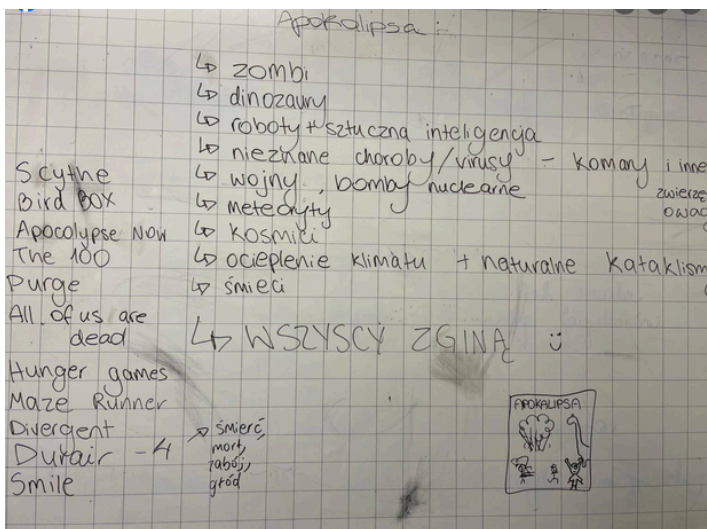 Apokalipsa:
↳ zombi
↳ dinozaury
↳ roboty + sztuczna inteligencja
↳ nieznane choroby/virusy - komary i inne
zwierzę
owad
↳ wojny, bomby nuclearne
↳ meteoryty
↳ kosmici
↳ ocieplenie klimatu + naturalne kataklism
↳ śmieci
↳ WSZYSCY ZGINĄ :)
Scythe
Bird BOX
Apocolypse Now
The 100
Purge
All of us are
dead
Hunger games
Maze Runner
Divergent
- 4
Smile
śmierć,
mort,
głód
APOKALIPSA